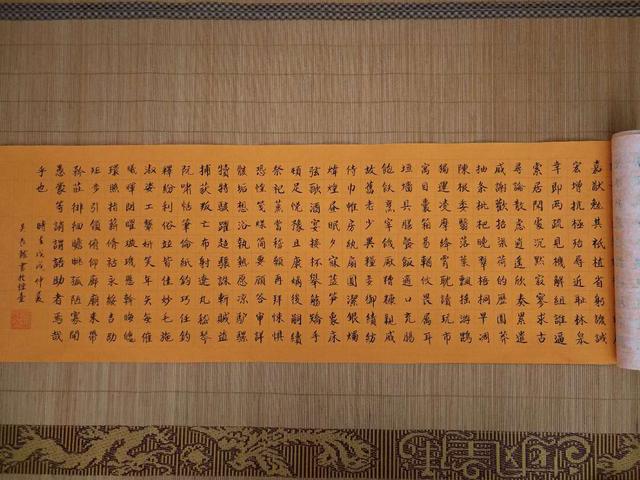 嘉猷勉其祗植省躬譏誡
寵增抗極殆辱近恥林皋
幸即兩疏見機解組誰逼
索居閒處沉默寂寥求古
尋論散慮逍遙欣奏累遣
慼謝歡招渠荷的歷園莽
抽條枇杷晚翠梧桐早凋
陳根委翳落葉飄颻游鵾
獨運凌摩絳霄耽讀玩市
寓目囊箱易輶攸畏屬耳
垣墻具膳餐飯適口充腸
飽飫烹宰飢厭糟糠親戚
故舊老少異糧妾御績紡
侍巾帷房紈扇圓潔銀燭
煒煌晝眠夕寐藍筍象床
弦歌酒宴接杯舉觴矯手
頓足悅豫且康嫡後嗣續
祭祀蒸嘗稽顙再拜悚懼
恐惶箋牒簡要顧答審詳
骸垢想浴執熱願涼驢騾
犢特駭躍超驤誅斬賊盜
捕獲叛亡布射遼丸嵇琴
阮嘯恬筆倫紙鈞巧任釣
釋紛利俗並皆佳妙毛施
淑姿工顰妍笑年矢每催
曦暉朗曜璇璣懸斡晦魄
環照指薪修祜永綏吉劭
矩步引領俯仰廊廟束帶
矜莊徘徊瞻眺孤陋寡聞
愚蒙等誚謂語助者焉哉
乎也
時在戊戌仲夏